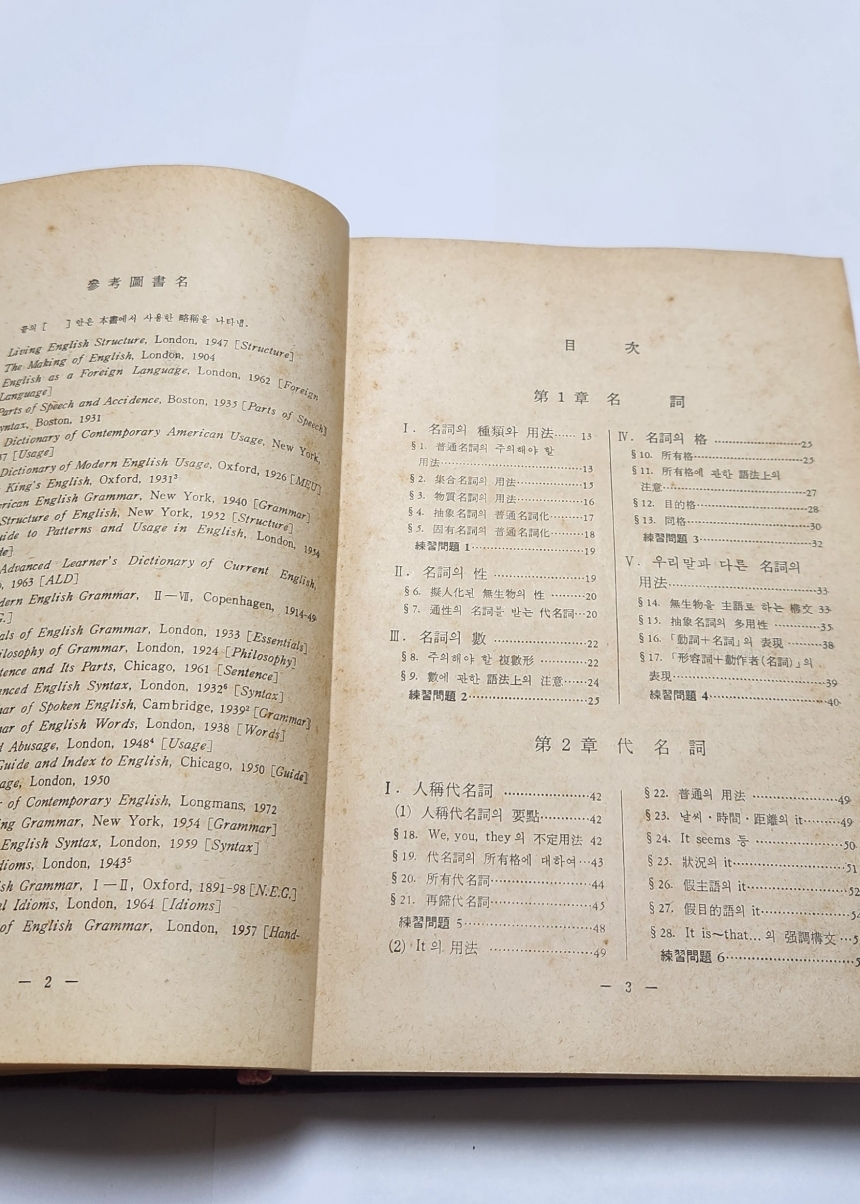 參考圖書名
끝의 [ ] 안은 本書에서 사용한 略稱을 나타냄.
Living English Structure, London, 1947 [Structure]
The Making of English, London, 1904
English as a Foreign Language, London, 1962 [Foreign
Language]
Parts of Speech and Accidence, Boston, 1935 [Parts of Speech]
Boston, 1931
Dictionary of Contemporary American Usage, New York,
[Usage]
Dictionary of Modern English Usage, Oxford, 1926 [MEU]
King's English, Oxford, 1931³
English Grammar, New York, 1940 [Grammar]
Structure of English, New York, 1952 [Structure]
to Patterns and Usage in English, London, 1954
Advanced Learner's Dictionary of Current English,
1963 [ALD]
English Grammar, II—VII, Copenhagen, 1914-49
of English Grammar, London, 1933 [Essentials]
of Grammar, London, 1924 [Philosophy]
and Its Parts, Chicago, 1961 [Sentence]
English Syntax, London, 1932⁶ [Syntax]
of Spoken English, Cambridge, 1939² [Grammar]
of English Words, London, 1938 [Words]
Abusage, London, 1948⁴ [Usage]
Guide and Index to English, Chicago, 1950 [Guide]
London, 1950
of Contemporary English, Longmans, 1972
Grammar, New York, 1954 [Grammar]
English Syntax, London, 1959 [Syntax]
London, 1943⁵
Grammar, I—II, Oxford, 1891-98 [N.E.G.]
Idioms, London, 1964 [Idioms]
of English Grammar, London, 1957 [Hand-
— 2 —
目 次
第1章 名 詞
I. 名詞의 種類와 用法…… 13
§1. 普通名詞의 주의해야 할
用法……13
§2. 集合名詞의 用法……15
§3. 物質名詞의 用法……16
§4. 抽象名詞의 普通名詞化……17
§5. 固有名詞의 普通名詞化……18
練習問題 1……19
II. 名詞의 性……19
§6. 擬人化된 無生物의 性……20
§7. 通性의 名詞를 받는 代名詞…20
III. 名詞의 數……22
§8. 주의해야 할 複數形……22
§9. 數에 관한 語法上의 注意……24
練習問題 2……25
IV. 名詞의 格……25
§10. 所有格……25
§11. 所有格에 관한 語法上의
注意……27
§12. 目的格……28
§13. 同格……30
練習問題 3……32
V. 우리말과 다른 名詞의
用法……33
§14. 無生物을 主語로 하는 構文 33
§15. 抽象名詞의 多用性……35
§16. 「動詞+名詞」의 表現……38
§17. 「形容詞+動作者(名詞)」의
表現……39
練習問題 4……40
第2章 代 名 詞
I. 人稱代名詞……42
(1) 人稱代名詞의 要點……42
§18. We, you, they의 不定用法 42
§19. 代名詞의 所有格에 대하여…43
§20. 所有代名詞……44
§21. 再歸代名詞……45
練習問題 5……48
(2) It의 用法……49
§22. 普通의 用法……49
§23. 날씨·時間·距離의 it……49
§24. It seems 등……50
§25. 狀況의 it……51
§26. 假主語의 it……52
§27. 假目的語의 it……54
§28. It is~that…의 强調構文…5
練習問題 6……5
— 3 —